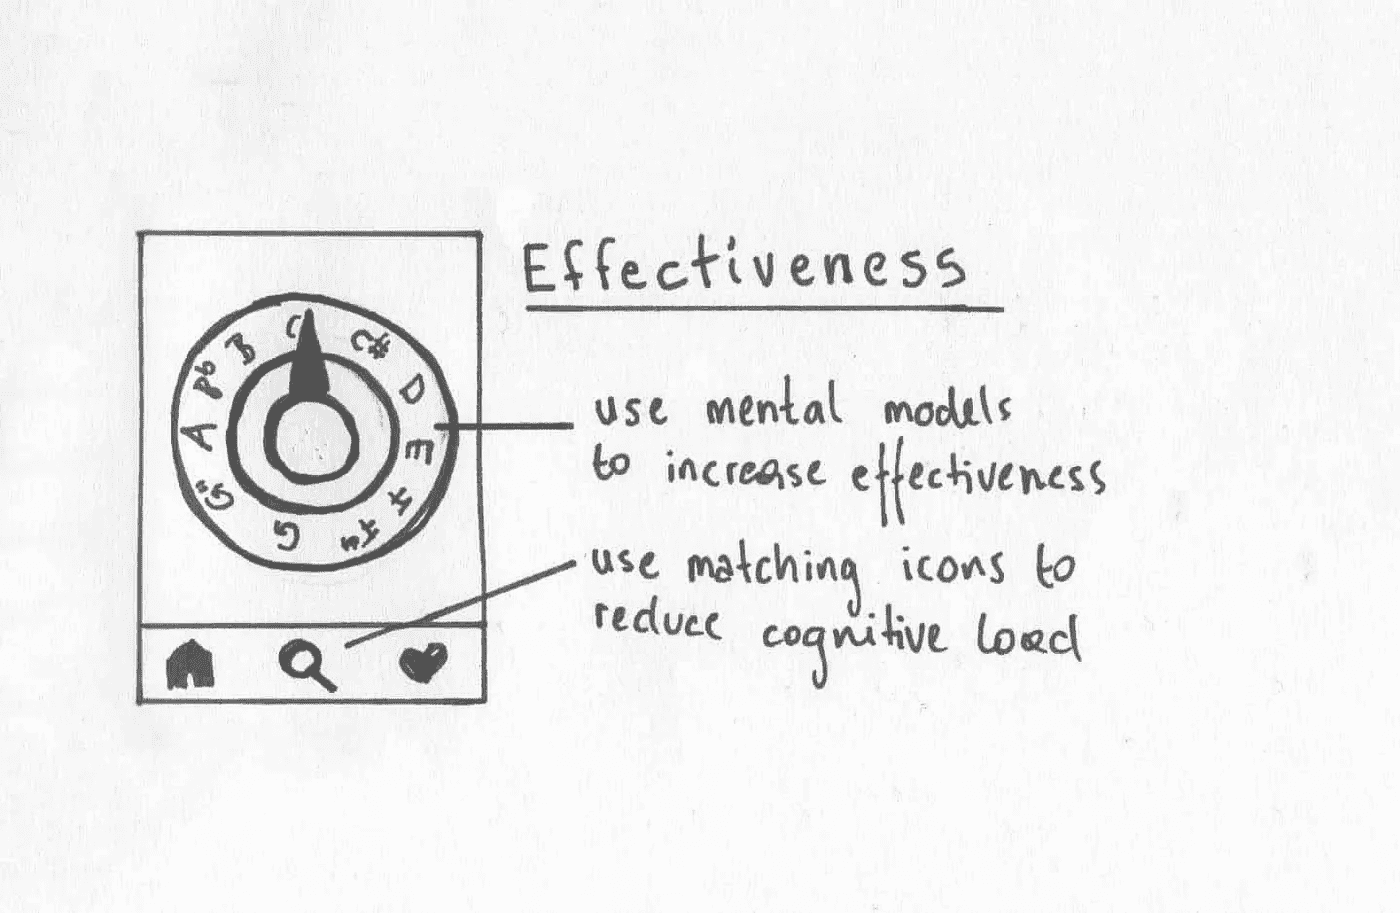 Effectiveness
C
C#
D
E
F
F#
G
G#
A
B
use mental models
to increase effectiveness
use matching icons to
reduce cognitive load